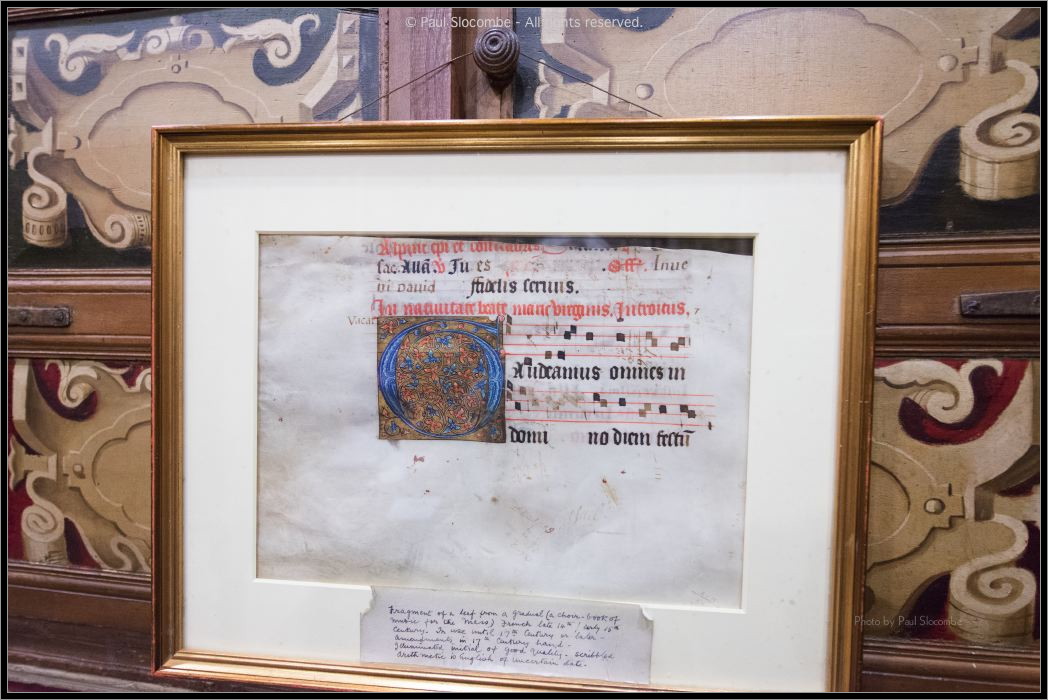 © Paul Slocombe - All rights reserved.
fac. Auā. v Ju es . Off. Inue
ni David ffidelis seruus.
In natiuitate beate marie virginis. Introitus.
Vacat
Audeamus omnes in
domi no diem festū
Fragment of a leaf from a gradual (a choir-book of
music for the Mass) French late 14th / early 15th
century. In use until 17th Century or later -
amendments in 17th Century hand.
Illuminated initial of good quality - scribbled
arithmetic is English of uncertain date.
Photo by Paul Slocombe